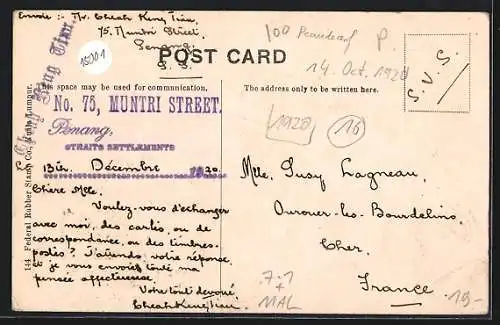 Envoie :- Mr. Cheah King Tiau,
75, Muntri Street,
Penang,
S. S.
15001
POST CARD
100
P.
14. Oct. 1920
S.V.S.
This space may be used for communication.
The address only to be written here.
No. 75, MUNTRI STREET.
Penang,
STRAITS SETTLEMENTS
13th, Décembre 1920.
1920
16
Chère Mlle.
Voulez-vous d'échanger
avec moi, des cartes, ou de
correspondance, ou des timbres-
postes? J'attends votre réponse,
et je vous envoie toute ma
pensée affectueuse.
Votre tout dévoué
144 Federal Rubber Stamp Co., Kuala Lumpur.
Mlle. Susy Lagneau,
Ourouer-les-Bourdelins,
Cher.
France
7.1
+
MAL
19-